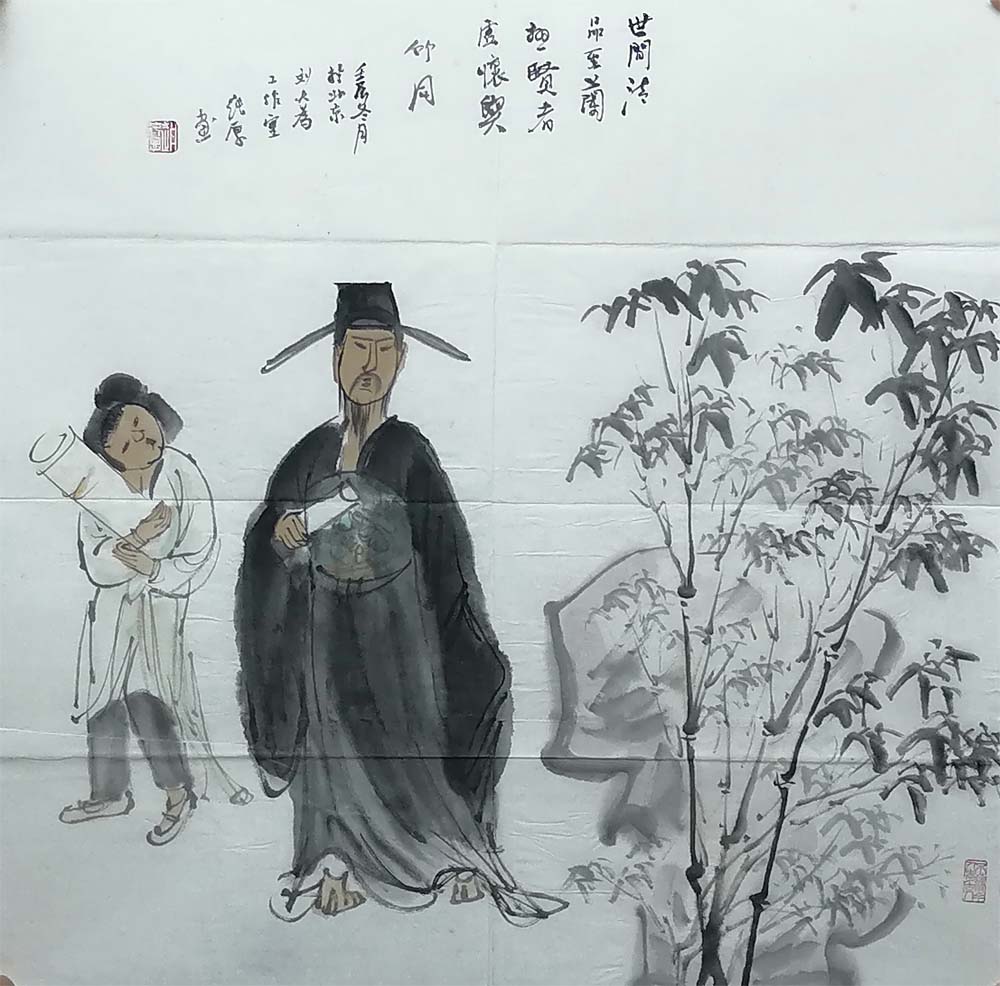 世間清
品至蘭
極賢者
虛懷與
竹同
壬辰冬月
於北京
刘大為
工作室
畫